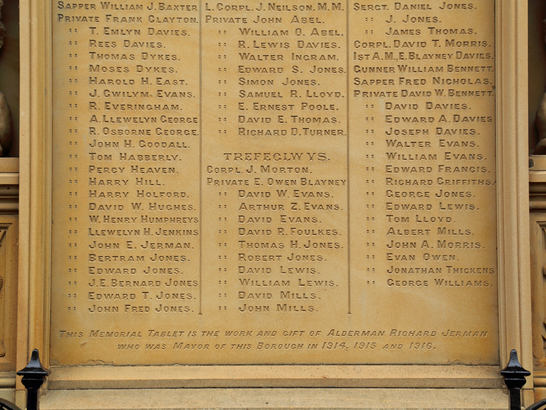 Sapper William J. Baxter
Private Frank Clayton.
" T. Emlyn Davies.
" Rees Davies.
" Thomas Dykes.
" Moses Dykes.
" Harold H. East.
" J. Gwilym. Evans.
" R. Everingham.
" A. Llewelyn George
" R. Osborne George.
" John H. Goodall.
" Tom Habberly.
" Percy Heaven.
" Harry Hill.
" Harry Holford.
" David W. Hughes.
" W. Henry Humphreys
" Llewelyn H. Jenkins
" John E. Jerman.
" Bertram Jones.
" Edward Jones.
" J. E. Bernard Jones
" Edward T. Jones.
" John Fred Jones.
L. Corpl. J. Neilson, M.M.
Private John Abel.
" William O. Abel.
" R. Lewis Davies.
" Walter Ingram.
" Edward S. Jones.
" Simon Jones.
" Samuel R. Lloyd.
" E. Ernest Poole.
" David E. Thomas.
" Richard D. Turner.
TREFEGLWYS.
Corpl. J. Morton.
Private E. Owen Blayney
" David W. Evans.
" Arthur Z. Evans.
" David Evans.
" David R. Foulkes.
" Thomas H. Jones.
" Robert Jones.
" David Lewis.
" William Lewis.
" David Mills.
" John Mills.
Sergt. Daniel Jones.
" J. Jones.
" James Thomas.
Corpl. David T. Morris.
1st A.M. E. Blayney Davies.
Gunner William Bennett.
Sapper Fred Nicholas.
Private David W. Bennett.
" David Davies.
" Edward A. Davies
" Joseph Davies.
" Walter Evans.
" William Evans.
" Edward Francis.
" Richard Griffiths.
" George Jones.
" Edward Lewis.
" Tom Lloyd.
" Albert Mills.
" John A. Morris.
" Evan Owen.
" Jonathan Thickens
" George Williams.
This Memorial Tablet is the work and gift of Alderman Richard Jerman
who was Mayor of this Borough in 1914, 1915 and 1916.